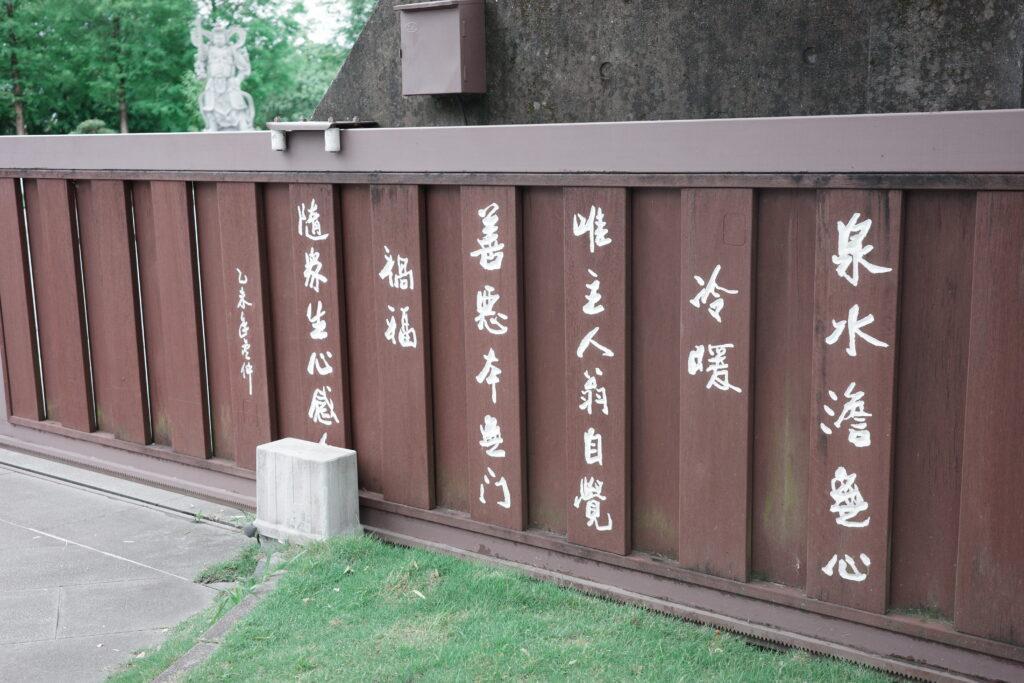 泉水澹無心
冷暖
唯主人翁自覺
善惡本無門
禍福
隨眾生心感
乙未